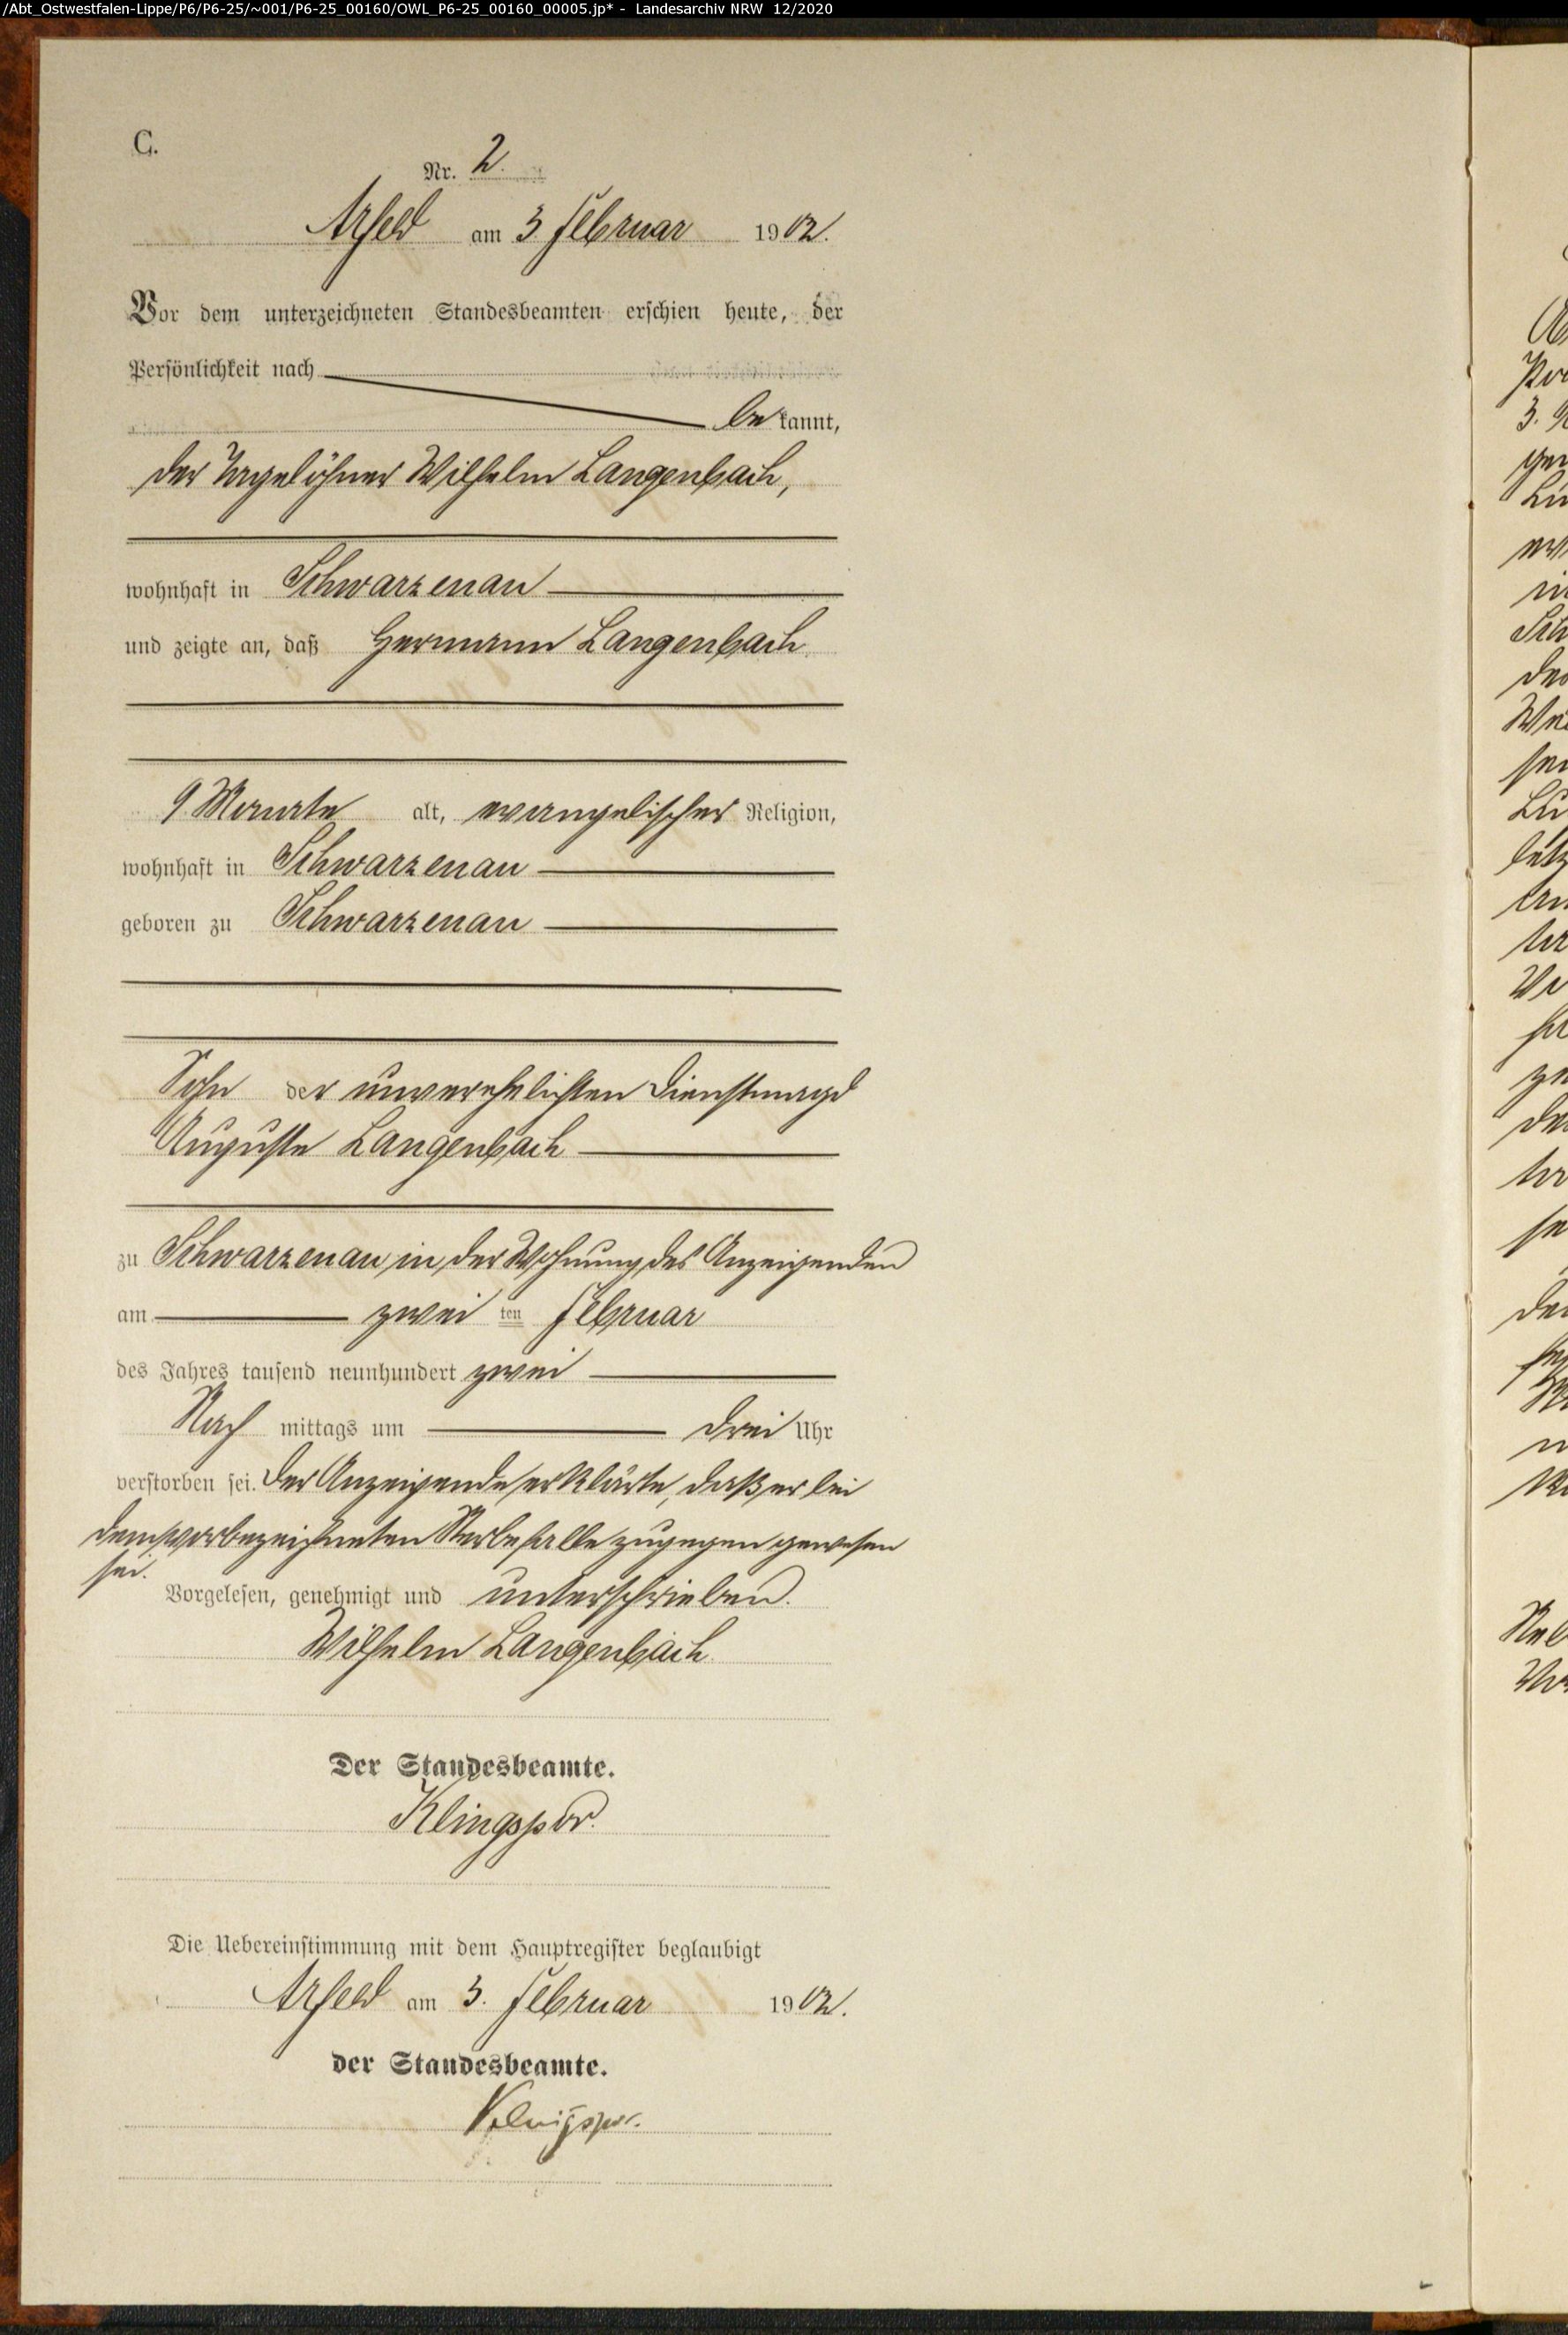 /Abt_Ostwestfalen-Lippe/P6/P6-25/~001/P6-25_00160/OWL_P6-25_00160_00005.jp* - Landesarchiv NRW 12/2020
C.
Nr. 2.
Arfeld am 3. Februar 1902.
Vor dem unterzeichneten Standesbeamten erschien heute, der
Persönlichkeit nach
bekannt,
der Tagelöhner Wilhelm Langenbach,
wohnhaft in Schwarzenau
und zeigte an, daß Hermann Langenbach
9 Monate alt, evangelischer Religion,
wohnhaft in Schwarzenau
geboren zu Schwarzenau
Sohn der unverehelichten Dienstmagd
Auguste Langenbach
zu Schwarzenau, in der Wohnung des Anzeigenden
am zweiten Februar
des Jahres tausend neunhundert zwei
Nachmittags um drei Uhr
verstorben sei. Der Anzeigende erklärte, daß er bei
dem vorbezeichneten Sterbefalle zugegen gewesen
sei.
Vorgelesen, genehmigt und unterschrieben.
Wilhelm Langenbach.
Der Standesbeamte.
Klingspor.
Die Uebereinstimmung mit dem Hauptregister beglaubigt
Arfeld am 3. Februar 1902.
der Standesbeamte.
Klingspor.